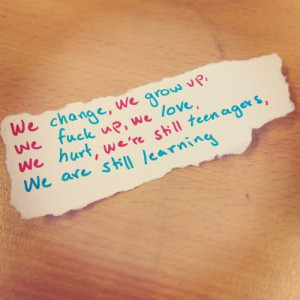 We change, We grow up,
We fuck up, we love,
We hurt, we're still teenagers,
We are still learning